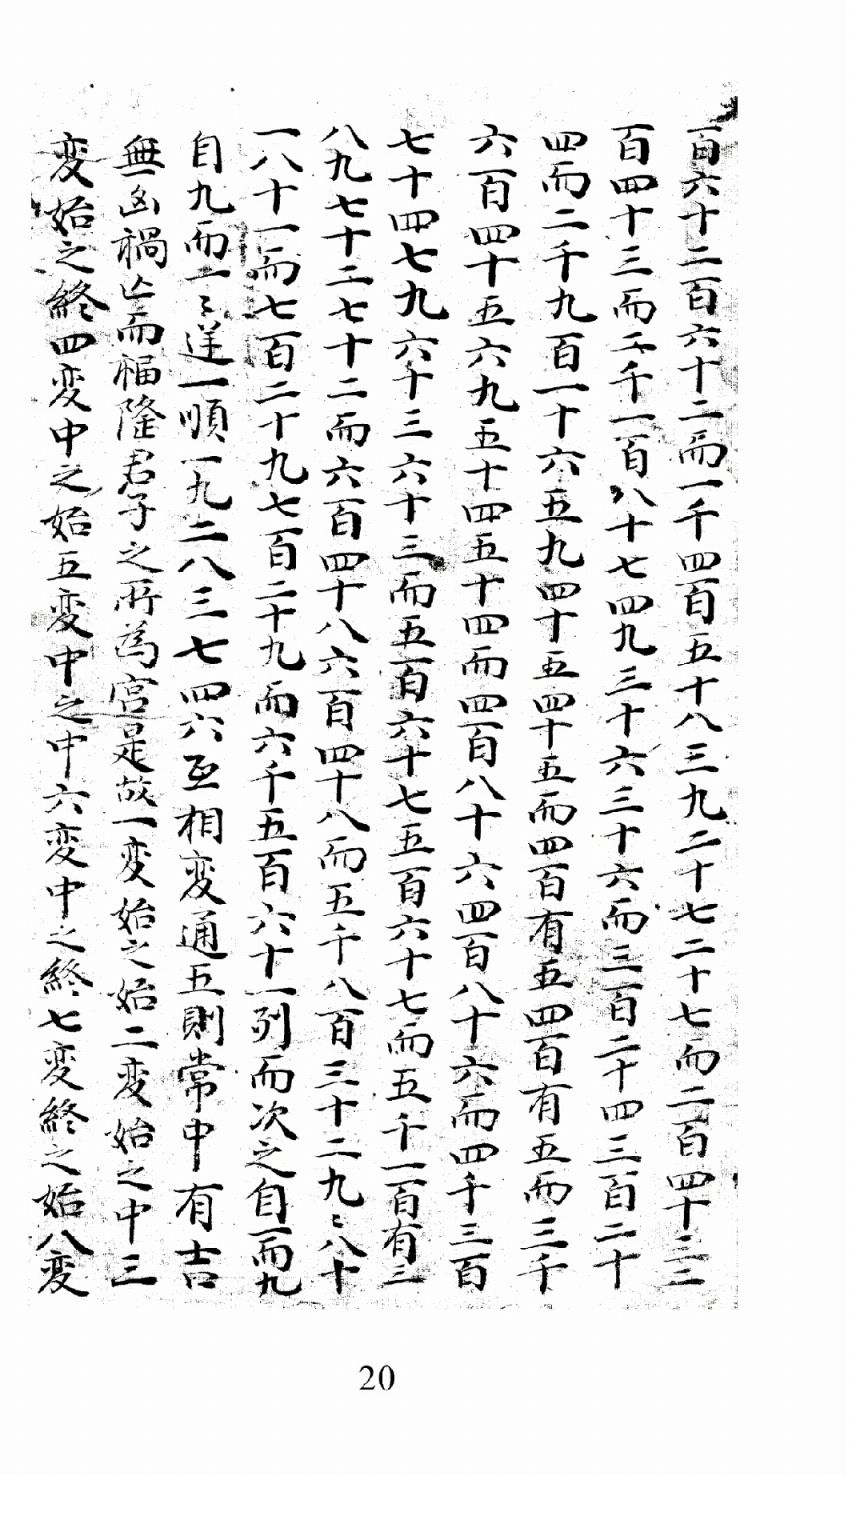 百六十二百六十二而一千四百五十八三九二十七二十七而二百四十三二
百四十三而二千一百八十七四九三十六三十六而三百二十四三百二十
四而二千九百一十六五九四十五四十五而四百有五四百有五而三千
六百四十五六九五十四五十四而四百八十六四百八十六而四千三百
七十四七九六十三六十三而五百六十七五百六十七而五千一百有三
八九七十二七十二而六百四十八六百四十八而五千八百三十二九〻八十
一八十一而七百二十九七百二十九而六千五百六十一列而次之自一而九
自九而一〻逆一順一九二八三七四六互相変通五則常中有吉
無凶禍亡而福隆君子之所為宮是故一変始之始二変始之中三
変始之終四変中之始五変中之中六変中之終七変終之始八変
20